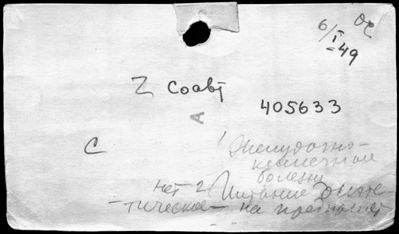 6/I-49
Z Coabj
405633
A
C
1 Желудочно-
кишечные
болезни
нет 2 Питание диэте-
тическое - на